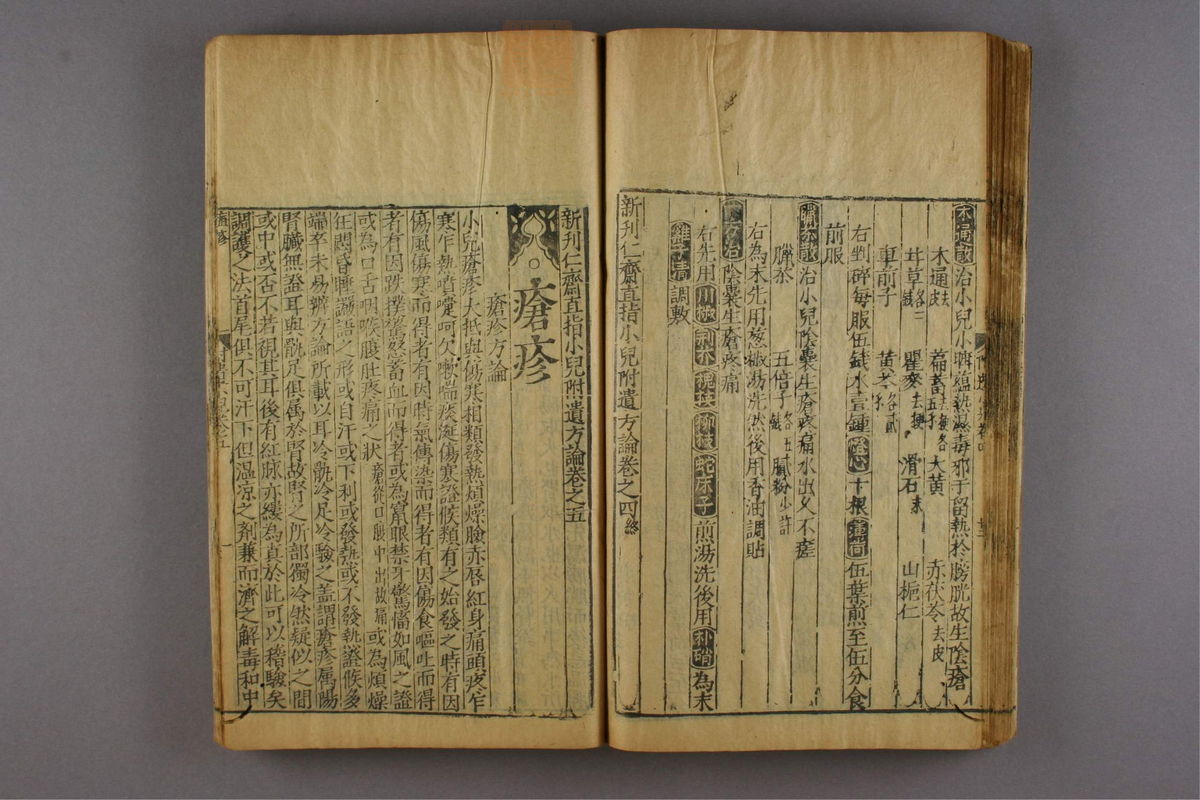 木通散治小兒心臍蘊熱㵎毒邪于留熱於膀胱故生陰瘡
木通去皮 萹蓄去梗各五分 大黃 赤茯苓去皮
甘草各二錢 瞿麥去梗 滑石末 山梔仁
車前子 黃芩各貳分
右剉碎每服伍錢水壹鍾燈心十根薄荷伍葉煎至伍分食
前服
臘茶散治小兒陰囊生瘡疼痛水出久不瘥
臘茶 五倍子各五錢 膩粉少許
右為末先用葱椒湯洗然後用香油調貼
又方治陰囊生瘡疼痛
右先用川椒荊芥槐枝柳枝蛇床子煎湯洗後用朴硝為末
雞子清調敷
新刊仁齋直指小兒附遺方論卷之四終
新刊仁齋直指小兒附遺方論卷之五
瘡疹
瘡疹方論
小兒瘡疹大抵與傷寒相類發熱煩燥臉赤唇紅身痛頭疼乍
寒乍熱噴嚏呵欠嗽喘痰涎傷寒證候類有之始發之時有因
傷風傷寒而得者有因時氣傳染而得者有因傷食嘔吐而得
者有因跌撲驚恐畜血而得者或為竄眼禁牙驚搐如風之證
或為口舌咽喉腹肚疼痛之狀瘡從口腹中出故痛或為煩燥
狂悶昏睡譫語之形或自汗或下利或發熱或不發熱證候多
端卒未易辨方論所載以耳冷骩冷足冷驗之蓋謂瘡疹屬陽
腎臟無證耳與骩足俱屬於腎故腎之所部獨冷然疑似之間
或中或否不若視其耳後有紅脉赤縷為真於此可以稽驗矣
調護之法首尾俱不可汗下但溫涼之劑兼而濟之解毒和中